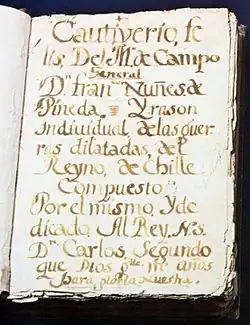 Cautiverio, fe
lis, Del M. de Campo
General
Dn. fran.co Nuñes, de
Pineda. Y rason
Indiuidual, de las guer
ras dilatadas, del
Reyno, de Chille
Compuesto
Por el mismo, Y de
dicado, Al Rey, N. S.
Dn. Carlos, Segundo
que Dios gde. m.s años
para gloria nuestra.